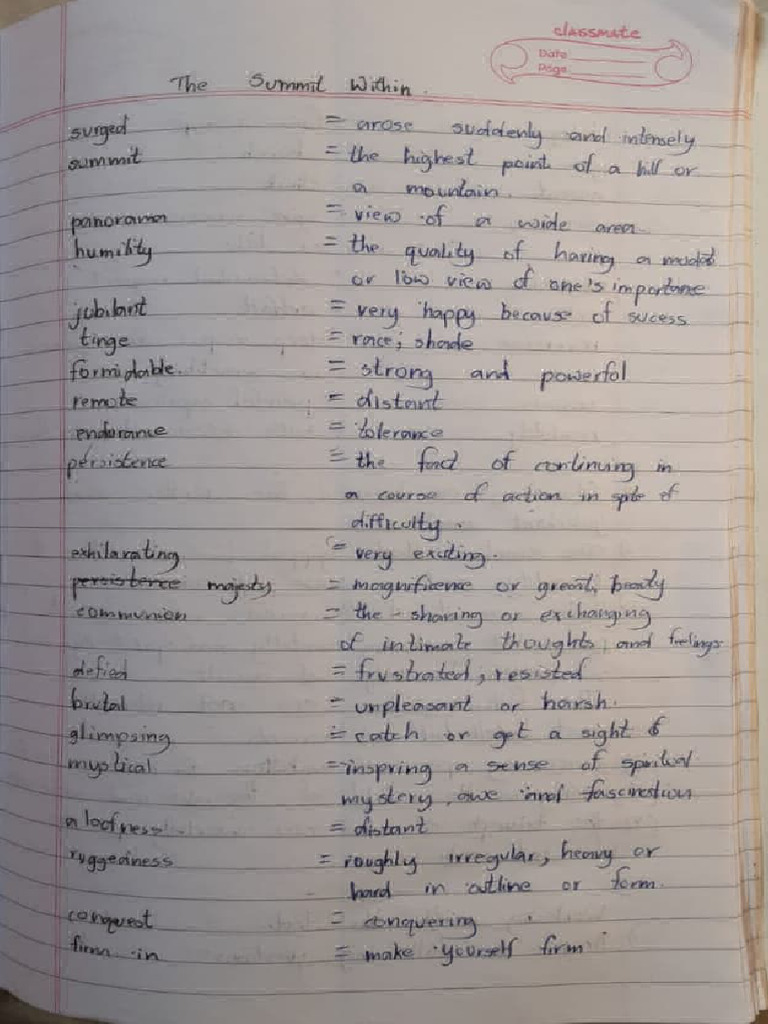 classmate
Date
Page
The Summit Within.
surged = arose suddenly and intensely
summit = the highest point of a hill or
a mountain.
panorama = view of a wide area
humility = the quality of having a modest
or low view of one's importance
jubilant = very happy because of sucess
tinge = race; shade
formidable. = strong and powerful
remote = distant
endurance = tolerance
persistence = the fact of continuing in
a course of action in spite of
difficulty.
exhilarating = very exciting.
persistence majesty = magnificence or great, beauty
communion = the sharing or exchanging
of intimate thoughts, and feelings
defied = frustrated, resisted
brutal = unpleasant or harsh.
glimpsing = catch or get a sight of
mystical = inspring a sense of spiritual
mystery, awe and fascination
aloofness = distant
ruggedness = roughly irregular, heavy or
hard in outline or form.
conquest = conquering
firm in = make yourself firm